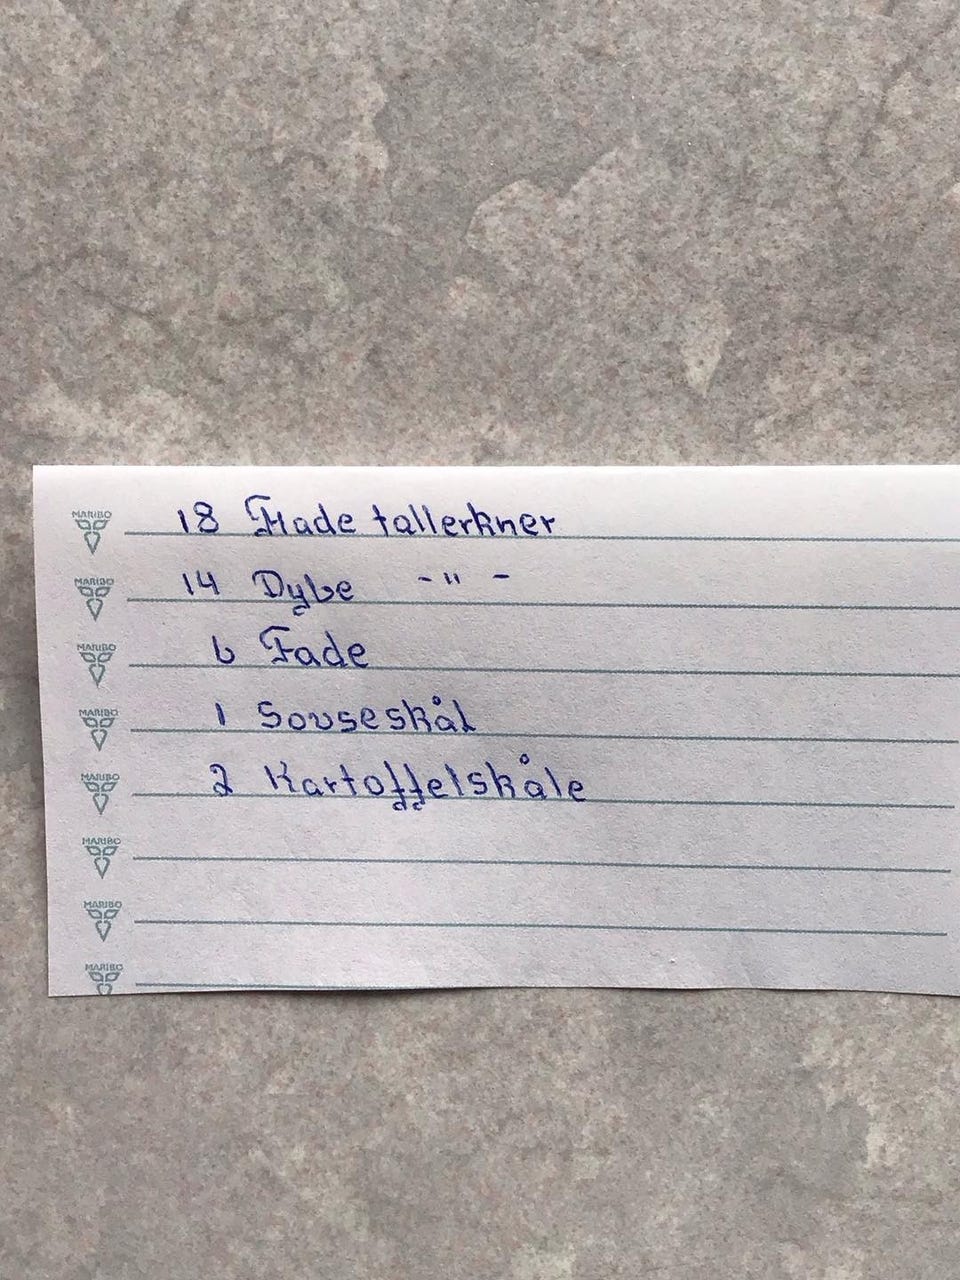 MARIBO 18 Flade tallerkner
MARIBO 14 Dybe -"-
MARIBO 6 Fade
MARIBO 1 Sovseskål
MARIBO 2 Kartoffelskåle
MARIBO
MARIBO
MARIBO